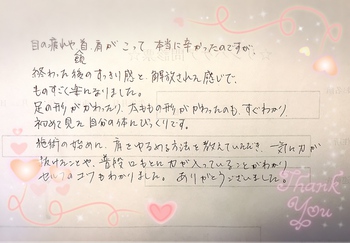 目の疲れや首、肩がこって、本当に辛かったのですが、
終わった後のすっきり感と、解放された感じで、
ものすごく楽になりました。
足の形がかわったり、太ももの形がかわったのも、すぐわかり、
初めて見た自分の体にびっくりです。
施術の始めに、肩をゆるめる方法を教えていただき、一気に力が
抜けたことや、普段口もとに力が入っていることがわかり
セルフのコツもわかりました。ありがとうございました。
Thank
You